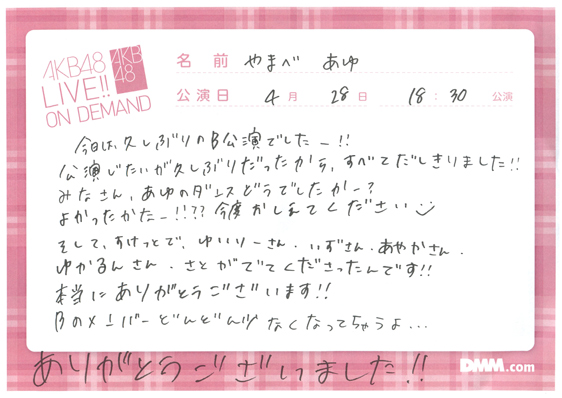 AKB48
LIVE!!
ON DEMAND
AKB
48
名 前 やまべ あゆ
公演日 4 月 28 日 18:30 公演
今日は、久しぶりのB公演でしたー!!
公演じたいが久しぶりだったから、すべてだしきりました!!
みなさん、あゆのダンスどうでしたかー?
よかったかたー!!?? 今度おしえてください
そして、すけっとで、ゆいりーさん・いずさん・あやかさん・
ゆかるんさん・さとがでてくださったんです!!
本当にありがとうございます!!
Bのメンバーどんどん なくなってちゃうよ...
ありがとうございました!!
DMM.com